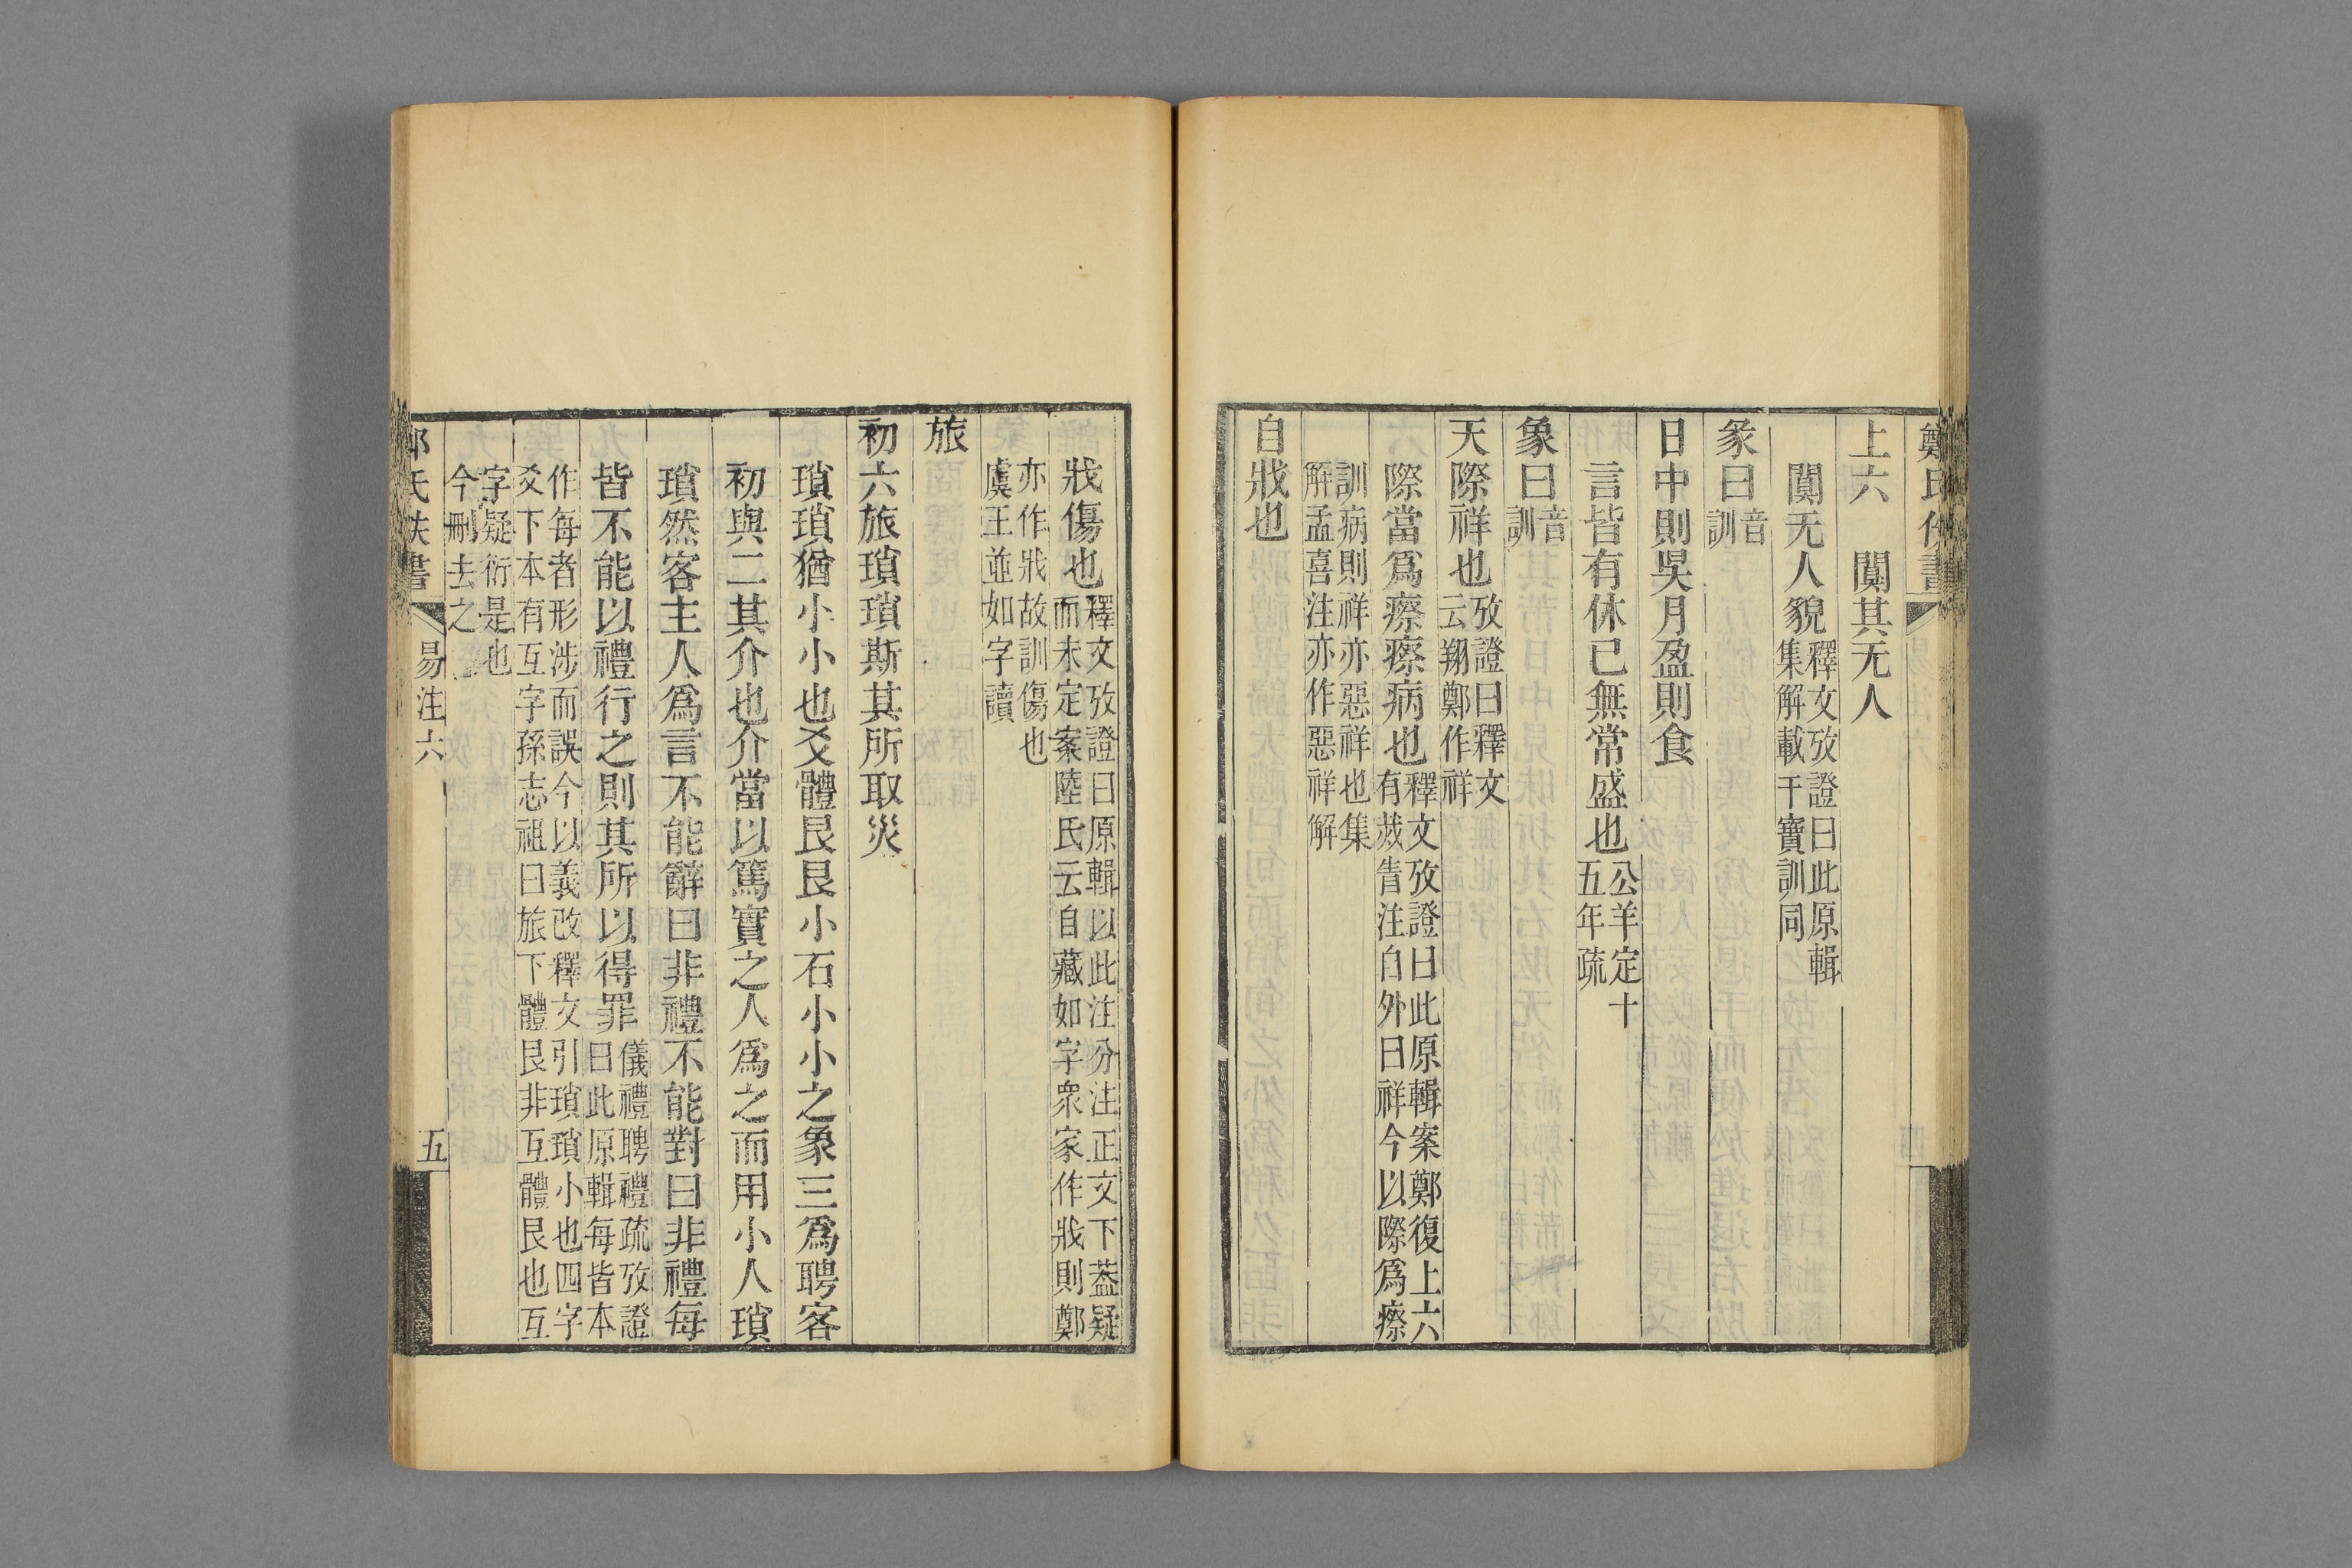 鄭氏佚書
上六　闃其无人
闃无人貌釋文攷證曰此原輯集解載干寶訓同
彖曰音訓
日中則吳月盈則食
言皆有休已無常盛也公羊定十五年疏
象曰音訓
天際祥也攷證曰釋文云翔鄭作祥
際當爲瘵瘵病也釋文攷證曰此原輯案鄭復上六有烖眚注自外曰祥今以際爲瘵
訓病則祥亦惡祥也集解孟喜注亦作惡祥解
自戕也
戕傷也釋文攷證曰原輯以此注分注正文下葢疑而未定案陸氏云自藏如字衆家作戕則鄭
亦作戕故訓傷也虞王並如字讀
旅
初六旅瑣瑣斯其所取災
瑣瑣猶小小也爻體艮艮小石小小之象三爲聘客
初與二其介也介當以篤實之人爲之而用小人瑣
瑣然客主人爲言不能辭曰非禮不能對曰非禮每
皆不能以禮行之則其所以得罪儀禮聘禮疏攷證曰此原輯每皆本
作每者形涉而誤今以義改釋文引瑣瑣小也四字爻下本有互字孫志祖曰旅下體艮非互體艮也互
字疑衍是也今刪去之
鄭氏佚書　易注六　五